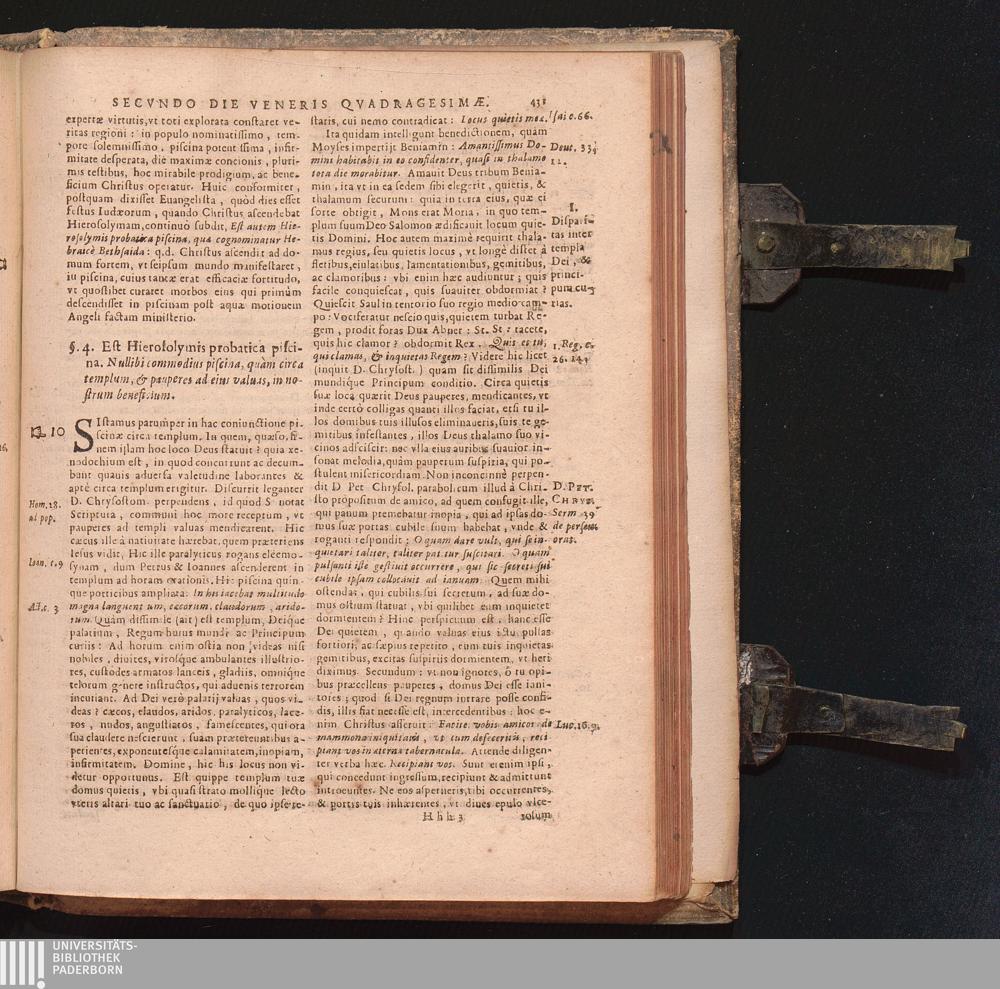 SECVNDO DIE VENERIS QVADRAGESIMÆ. 431
expertæ virtutis, vt toti explorata constaret ve-
ritas regioni: in populo nominatissimo, tem-
pore solemnissimo, piscina potentissima, infir-
mitate desperata, die maximæ concionis, pluri-
mis testibus, hoc mirabile prodigium, ac bene-
ficium Christus operatur. Huic conformiter,
postquam dixisset Euangelista, quòd dies esset
festus Iudæorum, quando Christus ascendebat
Hierosolymam, continuò subdit, Est autem Hie-
rosolymis probatica piscina, quæ cognominatur He-
braicè Bethsaida: q.d. Christus ascendit ad do-
mum fortem, vt seipsum mundo manifestaret,
in piscina, cuius tantæ erat efficaciæ fortitudo,
vt quostibet curaret morbos eius qui primùm
descendisset in piscinam post aquæ motionem
Angeli factam ministerio.
§. 4. Est Hierosolymis probatica pisci-
na. Nullibi commodius piscina, quàm circa
templum, & pauperes ad eius valuas, in no-
strum beneficium.
10
SIstamus parumper in hac coniunctione pi-
scinæ circa templum. In quem, quæso, fi-
nem islam hoc loco Deus statuit? quia xe-
nodochium est, in quod concurrunt ac decum-
bunt quauis aduersa valetudine laborantes &
aptè circa templum erigitur. Discurrit leganter
D. Chrysostom perpendens, id quod S notat
Scriptura, communi hoc more receptum, vt
pauperes ad templi valuas mendicarent. Hic
cæcus ille à natiuitate hærebat, quem præteriens
Iesus vidit, Hic ille paralyticus rogans eleemo-
synam, dum Petrus & Ioannes ascenderent in
templum ad horam orationis. Hic piscina quin-
que porticibus ampliata: In his iacebat multitudo
magna languentium, cæcorum, claudorum, arido-
rum. Quàm dissimile (ait) est templum, Deique
palatium, Regum huius mundi ac Principum
curiis: Ad horum enim ostia non videas nisi
nobiles, diuites, virosque ambulantes illustrio-
res, custodes armatos lanceis, gladiis, omnique
telorum genere instructos, qui aduenis terrorem
incutiant. Ad Dei verò palatij valuas, quos vi-
deas? cæcos, claudos, aridos, paralyticos, lace-
ros, nudos, angustiatos, famescentes, qui ora
sua claudere nescierunt, suam prætereuntibus a-
perientes, exponentesque calamitatem, inopiam,
infirmitatem. Domine, hic his locus non vi-
detur opportunus. Est quippe templum tuæ
domus quietis, vbi quasi strato mollique lecto
vteris altari tuo ac sanctuario, de quo ipse te-
Hom. 28.
ad pop.
Ioan. c. 9
Act. c. 3
staris, cui nemo contradicat: Locus quietis meæ.
Ita quidam intelligunt benedictionem, quàm
Moyses impertijt Beniamin: Amantissimus Do-
mini habitabit in eo confidenter, quasi in thalamo
tota die morabitur. Amauit Deus tribum Benia-
min, ita vt in ea sedem sibi elegerit, quietis, &
thalamum securum: quia in terra eius, quæ ei
sorte obtigit, Mons erat Moria, in quo tem-
plum suum Deo Salomon ædificauit locum quie-
tis Domini. Hoc autem maximè requirit thala-
mus regius, seu quietis locus, vt longè distet à
fletibus, eiulatibus, lamentationibus, gemitibus,
ac clamoribus: vbi enim hæc audiuntur; quis
facile conquiescat, quis suauiter obdormiat?
Quiescit Saul in tentorio suo regio medio cam-
po: Vociferatur nescio quis, quietem turbat Re-
gem, prodit foras Dux Abner: St. St: tacete,
quis hic clamor? obdormit Rex. Quis es tu,
qui clamas, & inquietas Regem? Videre hic licet
(inquit D. Chrysost.) quam sit dissimilis Dei
mundique Principum conditio. Circa quietis
suæ loca quærit Deus pauperes, mendicantes, vt
inde certò colligas quanti illos faciat, etsi tu il-
los domibus tuis illusos eliminaueris, suis te ge-
mitibus infestantes, illos Deus thalamo suo vi-
cinos adsciscit: nec vlla eius auribus suauior in-
sonat melodia, quàm pauperum suspiria, qui po-
stulent misericordiam. Non inconcinnè perpen-
dit D Pet Chrysol. parabolicum illud à Chri-
sto propositum de amico, ad quem confugit ille,
qui panum premebatur inopia, qui ad ipsas do-
mus suæ portas cubile suum habebat, vnde &
roganti respondit: O quam dare vult, qui se in-
quietari taliter, taliter patitur suscitari. O quam
pulsanti iste gestiuit occurrere, qui sic secreti sui
cubile ipsam collocauit ad ianuam. Quem mihi
ostendas, qui cubilis sui secretum, ad suæ do-
mus ostium statuat, vbi quilibet eum inquietet
dormientem? Hinc perspicuum est, hanc esse
Dei quietem, quando valuas eius ictu pulsas
fortiori, ac sæpius repetito, cum tuis inquietas
gemitibus, excitas suspiriis dormientem, vt heri
diximus. Secundum: vt non ignores, ô tu opi-
bus præcellens pauperes, domus Dei esse iani-
tores: quod si Dei regnum intrare posse confi-
dis, illis fiat necesse est, intercedentibus: hoc e-
nim Christus asseruit: Facite vobis amicos de
mammona iniquitatis, vt cum defeceritis, reci-
piant vos in æterna tabernacula. Attende diligen-
ter verba hæc. Recipiant vos. Sunt etenim ipsi,
qui concedunt ingressum, recipiunt & admittunt
introeuntes. Ne eos asperneris, tibi occurrentes,
& portis tuis inhærentes, vt diues epulo vlce-
Isai c. 66.
Deut. 33.
12.
I.
Disparitas inter
templa
Dei, &
principum cu-
rias.
1. Reg. c.
26. 14.
D. PET.
CHRYS.
Serm 39
de perseu.
orat.
Luc. 16. 9.
Hhh 3 rosum
UNIVERSITÄTS-
BIBLIOTHEK
PADERBORN